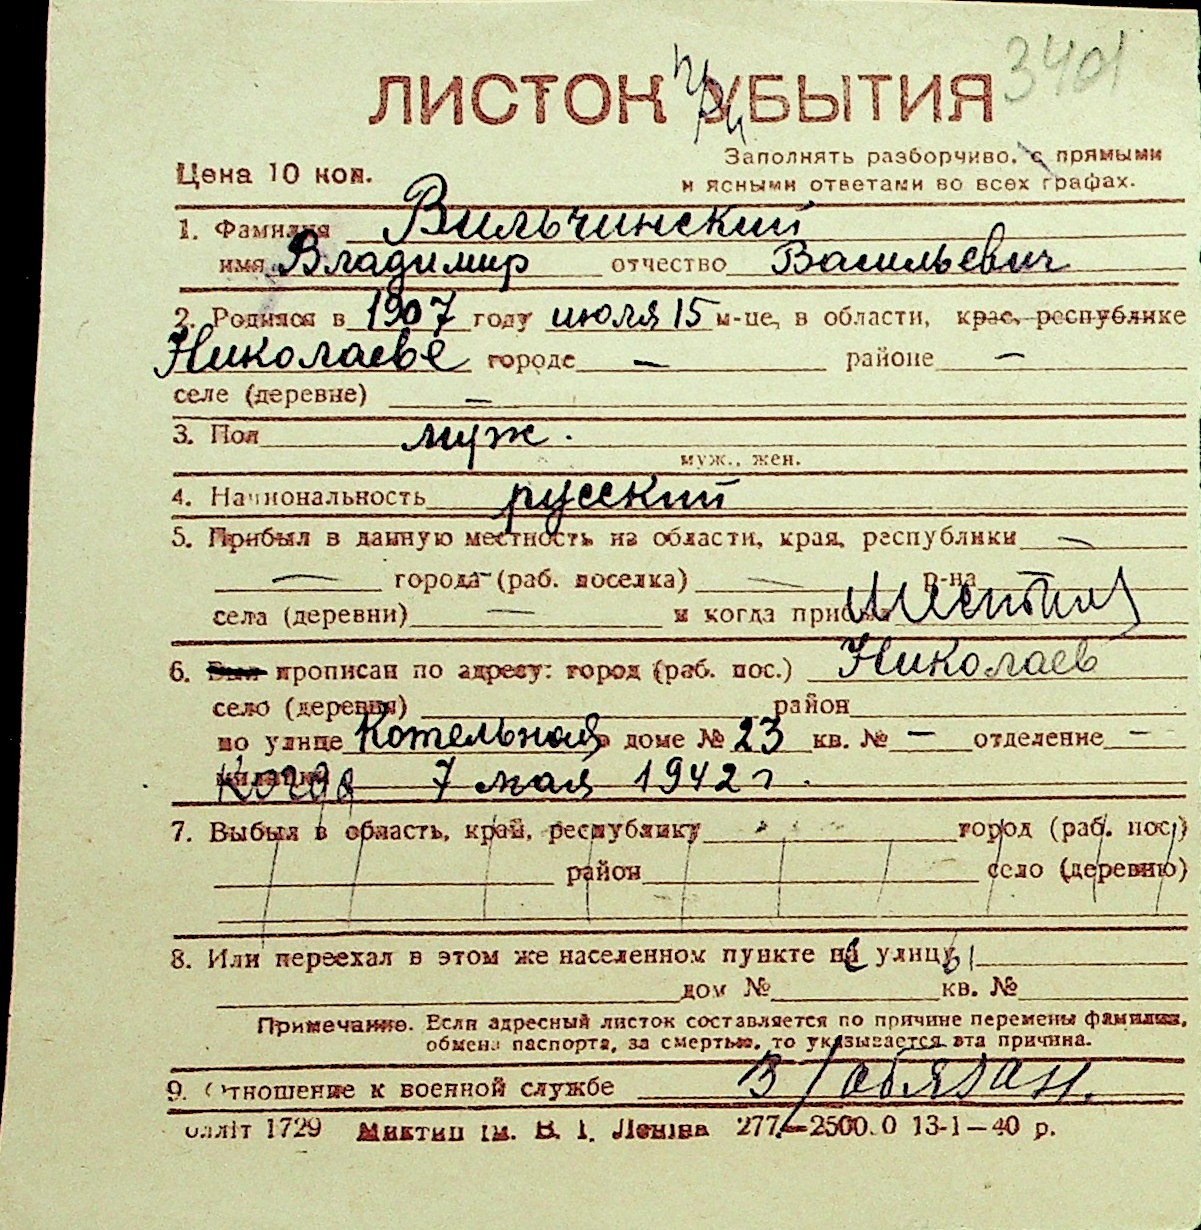 3401
ЛИСТОК При УБЫТИЯ
Цена 10 коп.
Заполнять разборчиво, с прямыми
и ясными ответами во всех графах.
1. Фамилия Вильчинский
имя Владимир отчество Васильевич
2. Родился в 1907 году июля 15 м-це, в области, крае, республике
Николаеве городе — районе —
селе (деревне) —
3. Пол муж.
муж., жен.
4. Национальность русский
5. Прибыл в данную местность из области, края, республики —
— города (раб. поселка) — р-на
села (деревни) — и когда прибыл
6. Был прописан по адресу: город (раб. пос.) Николаев
село (деревня) район
по улице Котельная в доме № 23 кв. № — отделение —
Когда 7 мая 1942 г.
7. Выбыл в область, край, республику город (раб. пос.)
район село (деревню)
8. Или переехал в этом же населенном пункте на улицу
дом № кв. №
Примечание. Если адресный листок составляется по причине перемены фамилии,
обмена паспорта, за смертью, то указывается эта причина.
9. Отношение к военной службе В/обязан.
1729 ім. В. І. Леніна 277—2500.0 13-1—40 р.